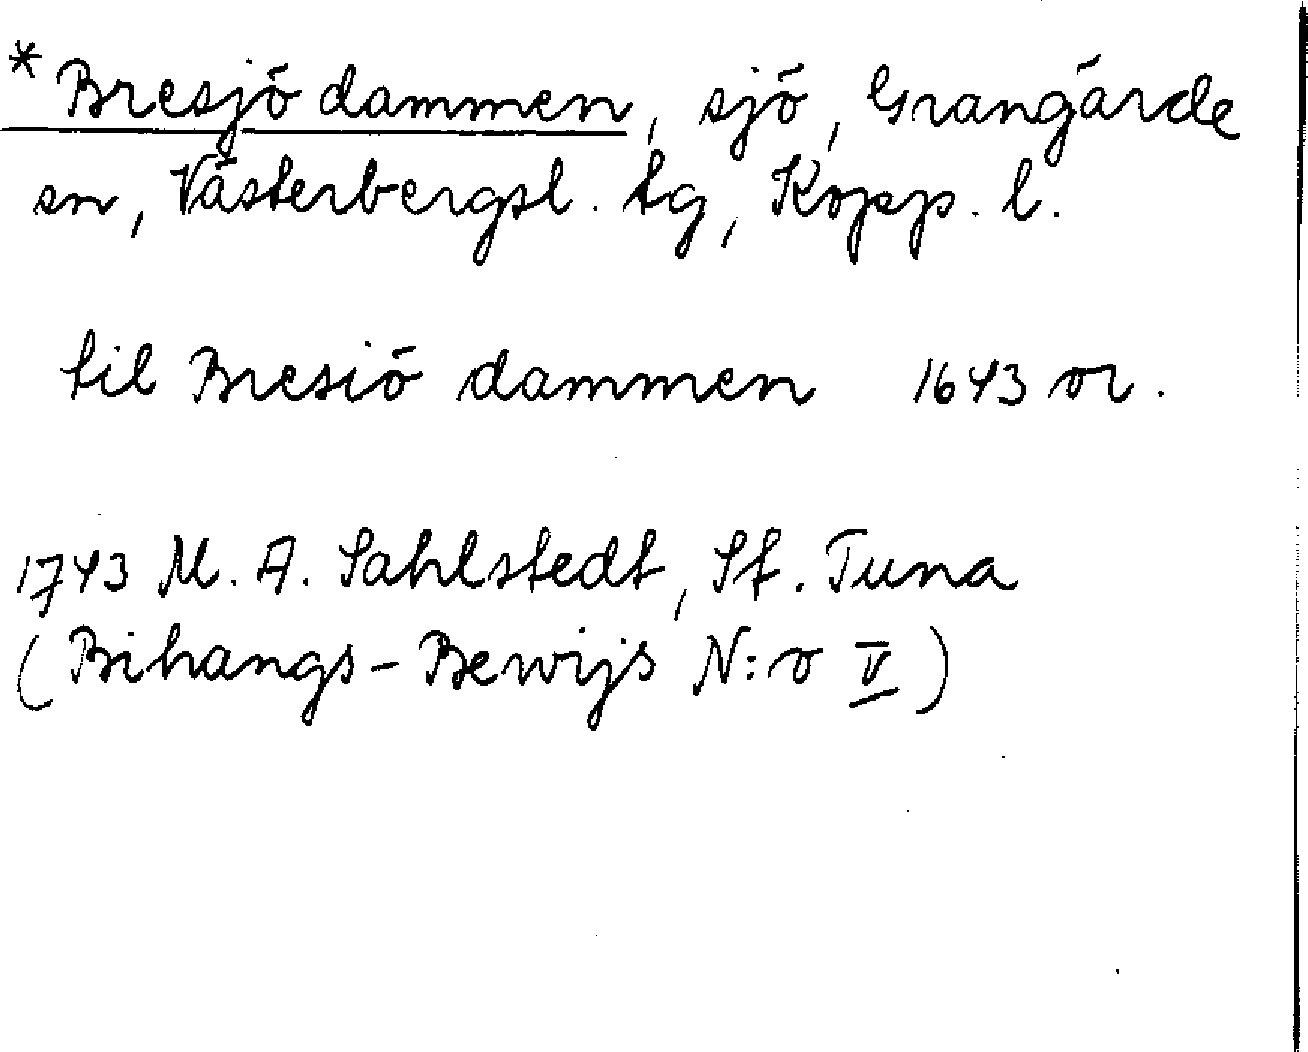 *Bresjödammen, sjö, Grangärde
sn, Västerbergsl. tg, Kopp. l.
til Bresiö dammen 1643 or.
1743 M. A. Sahlstedt, St. Tuna
(Bihangs-Bewijs N:o V)